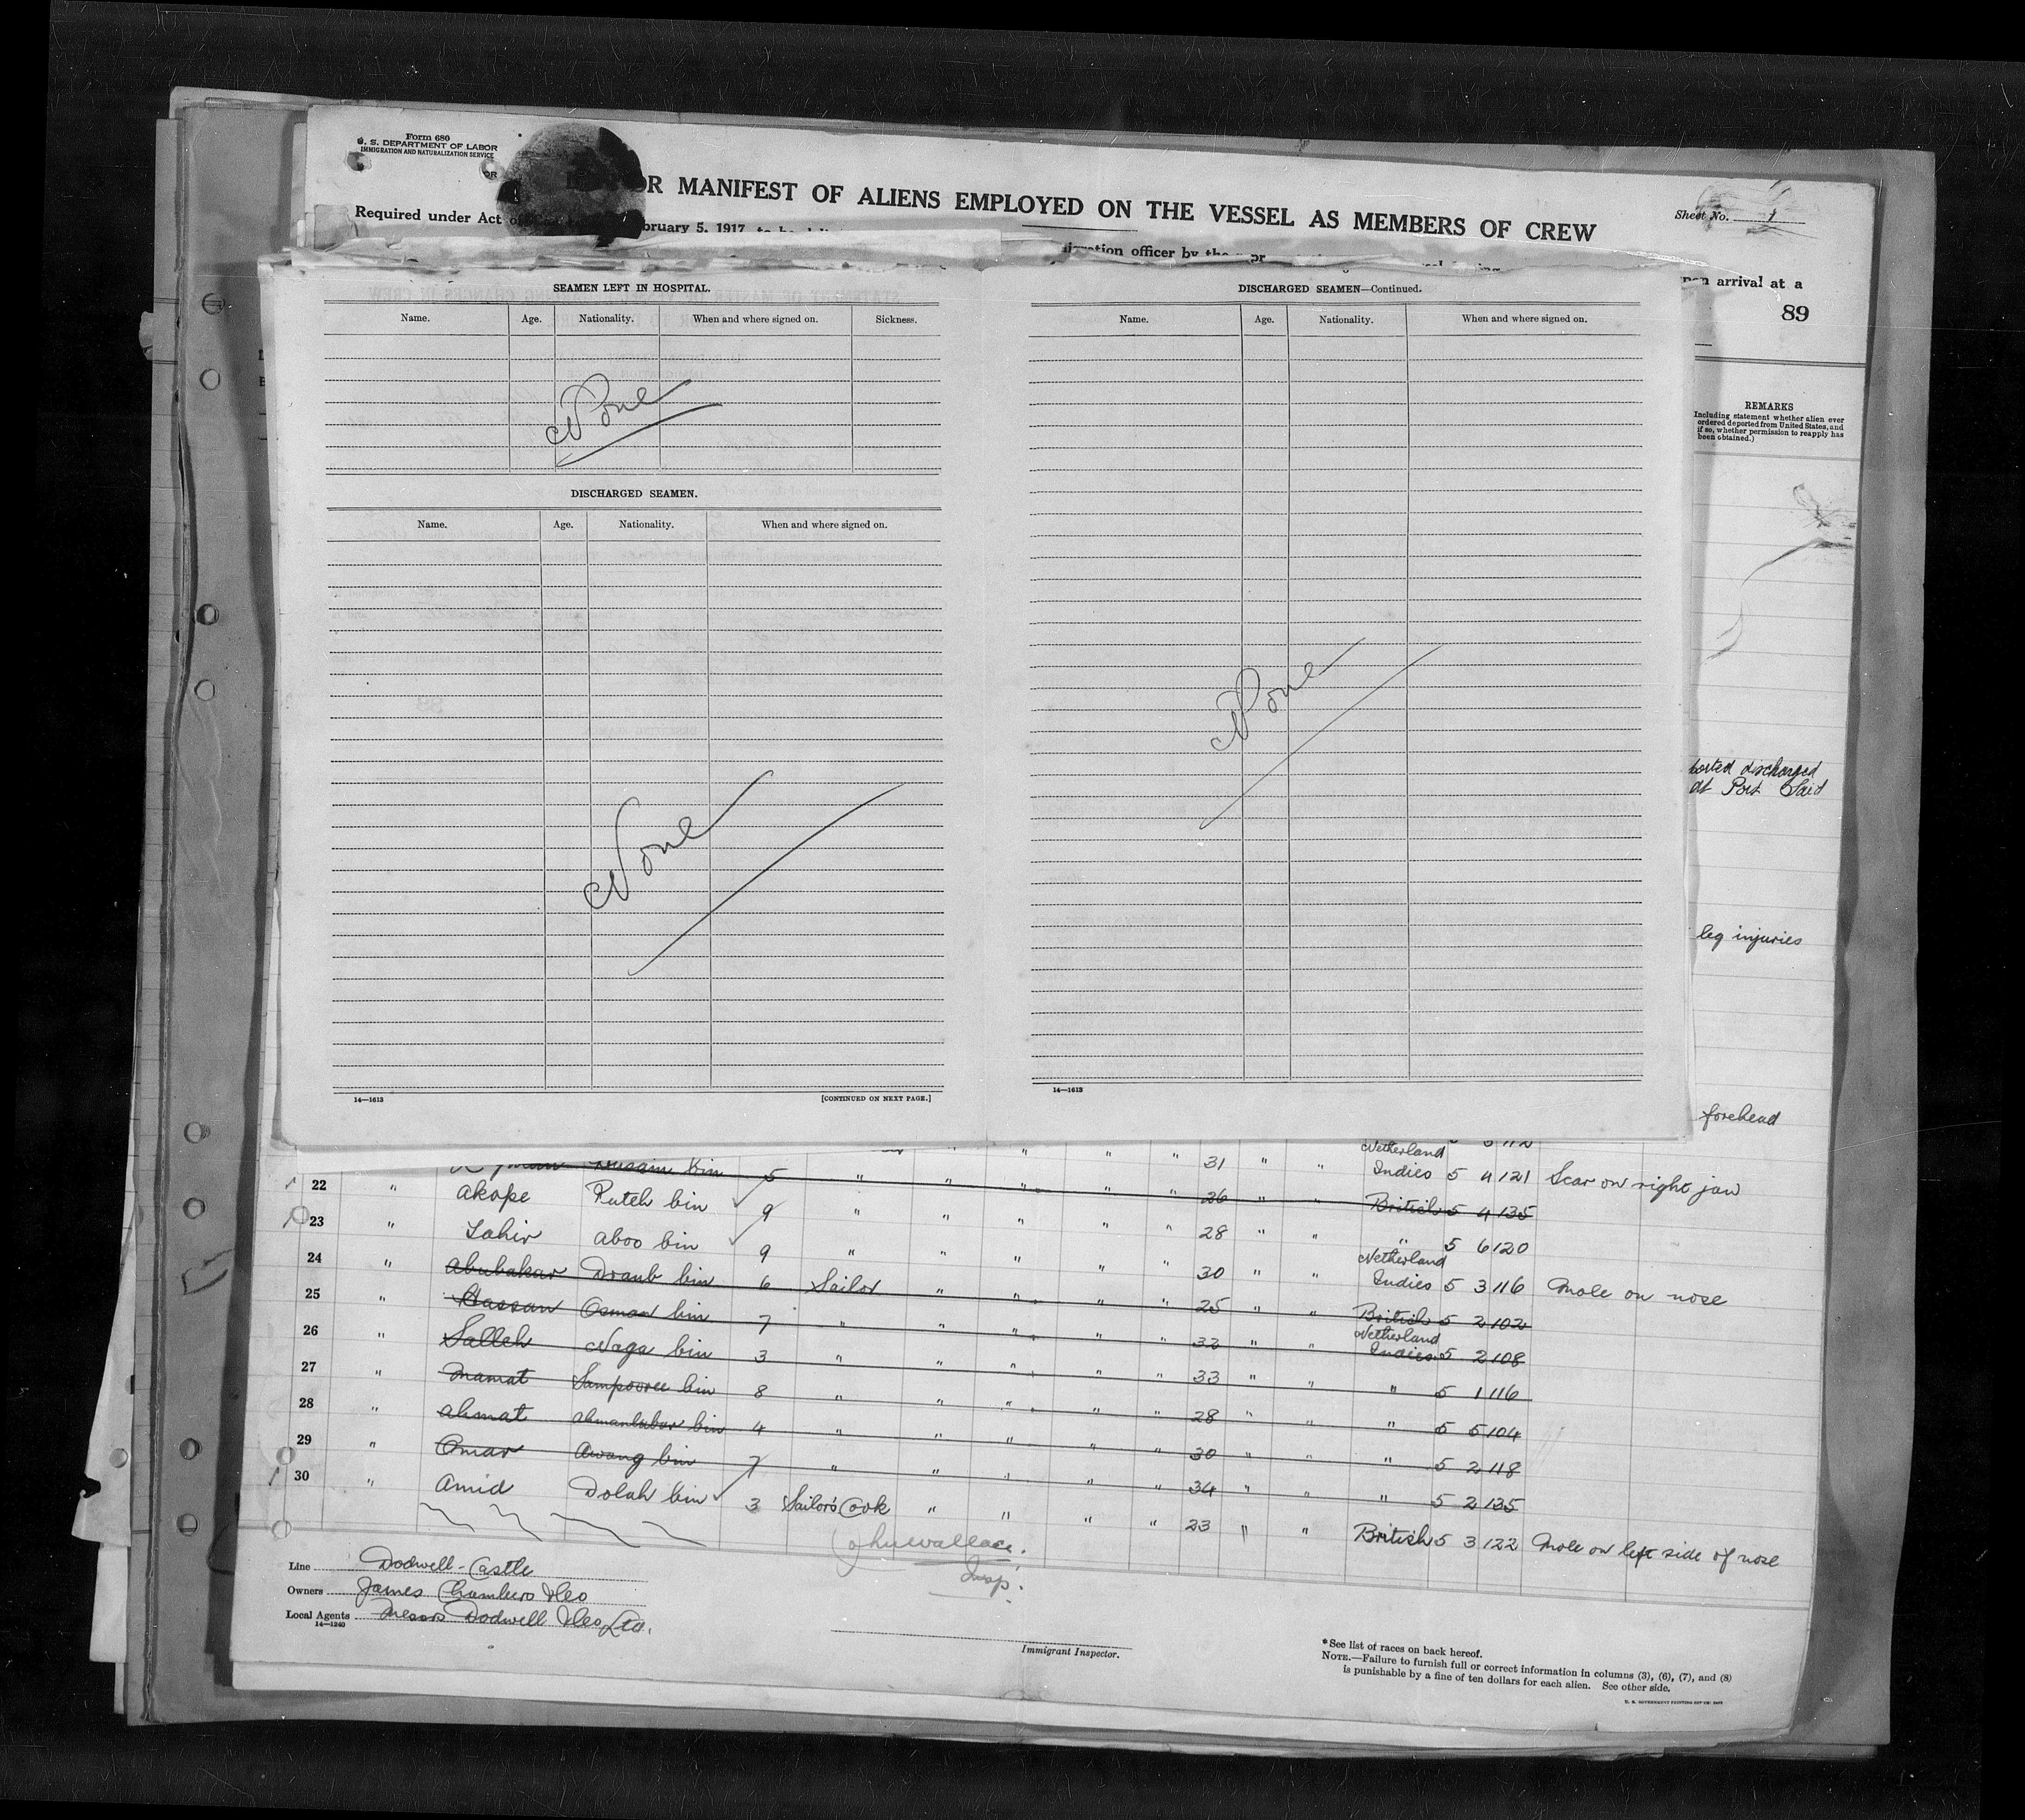 Form 680
U. S. DEPARTMENT OF LABOR
IMMIGRATION AND NATURALIZATION SERVICE
OR
OR MANIFEST OF ALIENS EMPLOYED ON THE VESSEL AS MEMBERS OF CREW
Sheet No. 1
Required under Act of bruary 5, 1917,
igration officer by the
arrival at a
89
SEAMEN LEFT IN HOSPITAL.
Name. Age. Nationality. When and where signed on. Sickness.
None
DISCHARGED SEAMEN.
Name. Age. Nationality. When and where signed on.
None
14—1613 [CONTINUED ON NEXT PAGE.]
DISCHARGED SEAMEN—Continued.
Name. Age. Nationality. When and where signed on.
None
14—1613
REMARKS
Including statement whether alien ever
ordered deported from United States, and
if so, whether permission to reapply has
been obtained.)
discharged
at Port Said
leg injuries
forehead
Hussain bin 5 " " " " " 31 " " Netherland Indies 5 4 121 Scar on right jaw
22 " Akope Puteh bin 9 " " " " " 26 " " British 5 4 135
23 " Tahir Aboo bin 9 " " " " " 28 " " " 5 6 120
24 " Abubakar Draub bin 6 Sailor " " " " 30 " " Netherland Indies 5 3 116 Mole on nose
25 " Hassan Osman bin 7 " " " " " 25 " " British 5 2 102
26 " Salleh Naga bin 3 " " " " " 33 " " Netherland Indies 5 2 108
27 " Mamat Sampooree bin 8 " " " " " 33 " " " 5 1 116
28 " Ahmat bin 4 " " " " " 28 " " " 5 5 104
29 " Omar Awang bin 7 " " " " " 30 " " " 5 2 118
30 " Amid Dolah bin 3 Sailor's Cook " " " " 34 " " " 5 2 135
23 " " British 5 3 122 Mole on left side of nose
John Wallace.
Insp.
Line Dodwell-Castle
Owners James Chambers & Co
Local Agents Messrs Dodwell & Co, Ltd.
14—1240
Immigrant Inspector.
*See list of races on back hereof.
NOTE.—Failure to furnish full or correct information in columns (3), (6), (7), and (8)
is punishable by a fine of ten dollars for each alien. See other side.